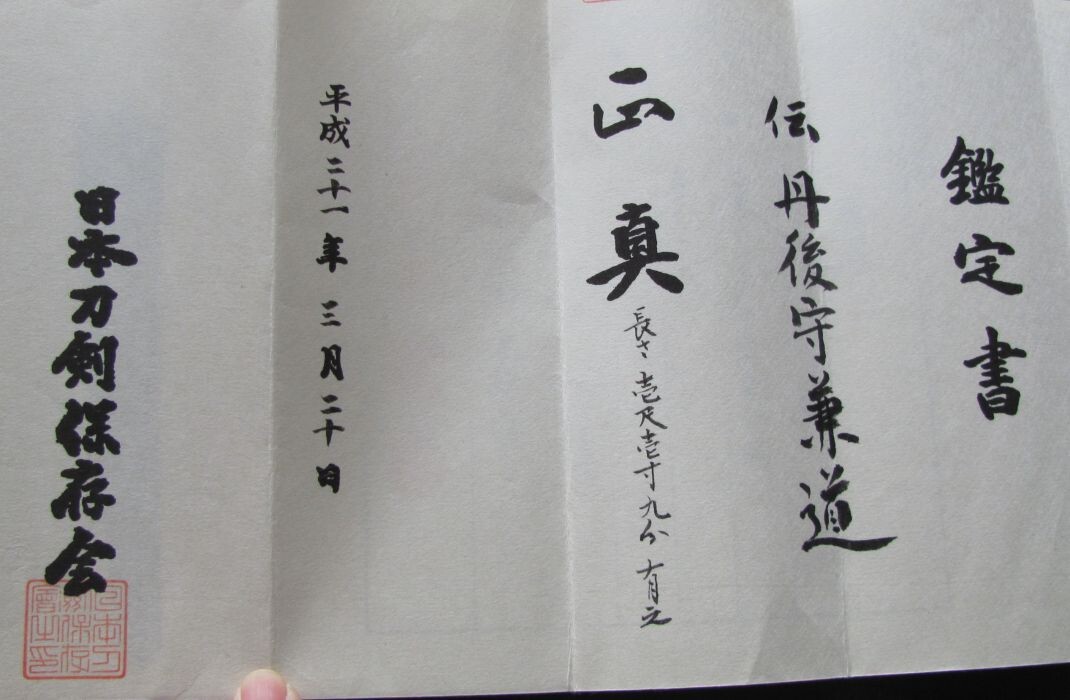 鑑定書
伝 丹後守兼道
正真
長さ 壱尺壱寸九分 有之
平成二十一年 三月二十日
日本刀剣保存会